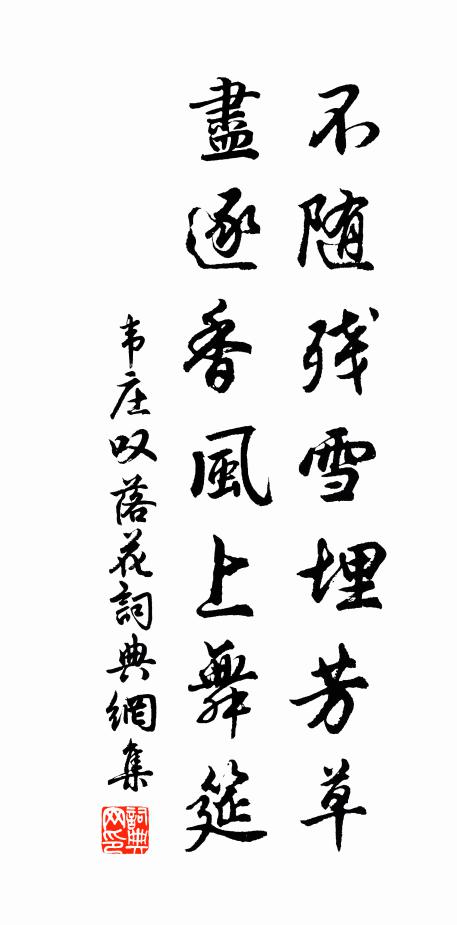 不随残雪埋芳草
盡逐香風上舞筵
韦庄叹落花詞典網集
詞典网印